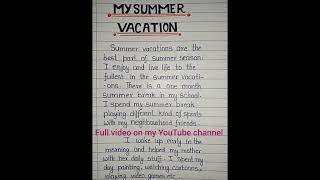 MY SUMMER
VACATION
Summer vacations are the
best part of summer season.
I enjoy and live life to the
fullest in the summer vacati-
ons. There is a one month
summer break in my school.
I spend my summer break
playing different kind of sports
with my neighbourhood friends.
Full video on my YouTube channel
I woke up early in the
morning and helped my mother
with her daily stuff. I spent my
day painting, watching cartoons,
playing video games etc.